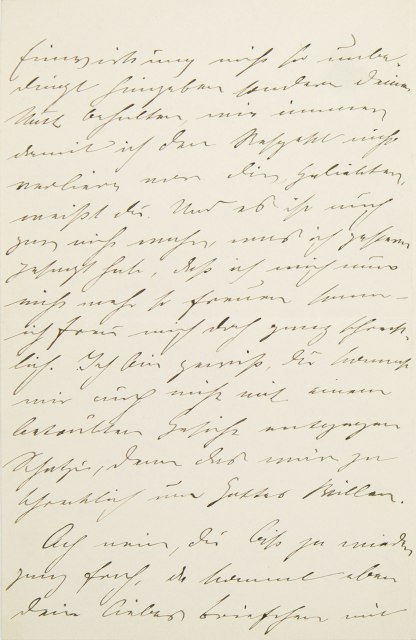 Einwirkung nicht so unbe-
dingt hingeben sondern Deinen
Mut behalten, wie immer
damit ich den Respekt nicht
verliere vor dir, Geliebter,
weißt du. Und es ist auch
gar nicht wahr, was ich gestern
gesagt hab, daß ich mich nun
nicht mehr so freuen kann –
ich freu mich doch ganz schreck-
lich. Ich bin gewiß, du kommst
mir auch nicht mit einem
betrübten Gesicht entgegen
Schatzi, denn das wär zu
schrecklich um Gottes Willen.
Ach nein, du bist ja wieder
ganz froh, da kommt eben
dein liebes Briefchen mit